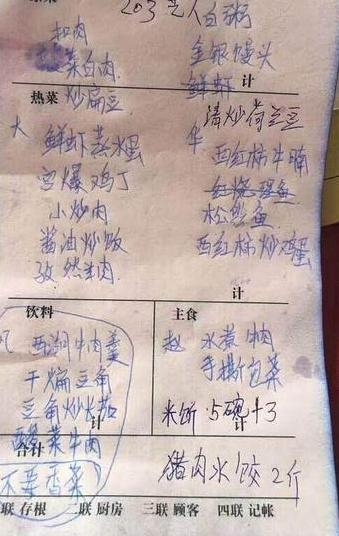 203 艺人白粥
扣肉
金银馒头
菜白肉
鲜虾
计
热菜 炒扁豆
清炒荷兰豆
大 鲜虾蒸水蛋
华 西红柿牛腩
宫爆鸡丁
红烧
小炒肉
松鼠鱼
酱油炒饭
西红柿炒鸡蛋
孜然羊肉
计
饮料
主食
西湖牛肉羹
赵 水煮牛肉
干煸豆角
手撕包菜
豆角炒茄
计
米饭 5碗+3
计
酸菜牛肉
合计
猪肉水饺 2斤
不要香菜
联 存根 二联 厨房 三联 顾客 四联 记帐